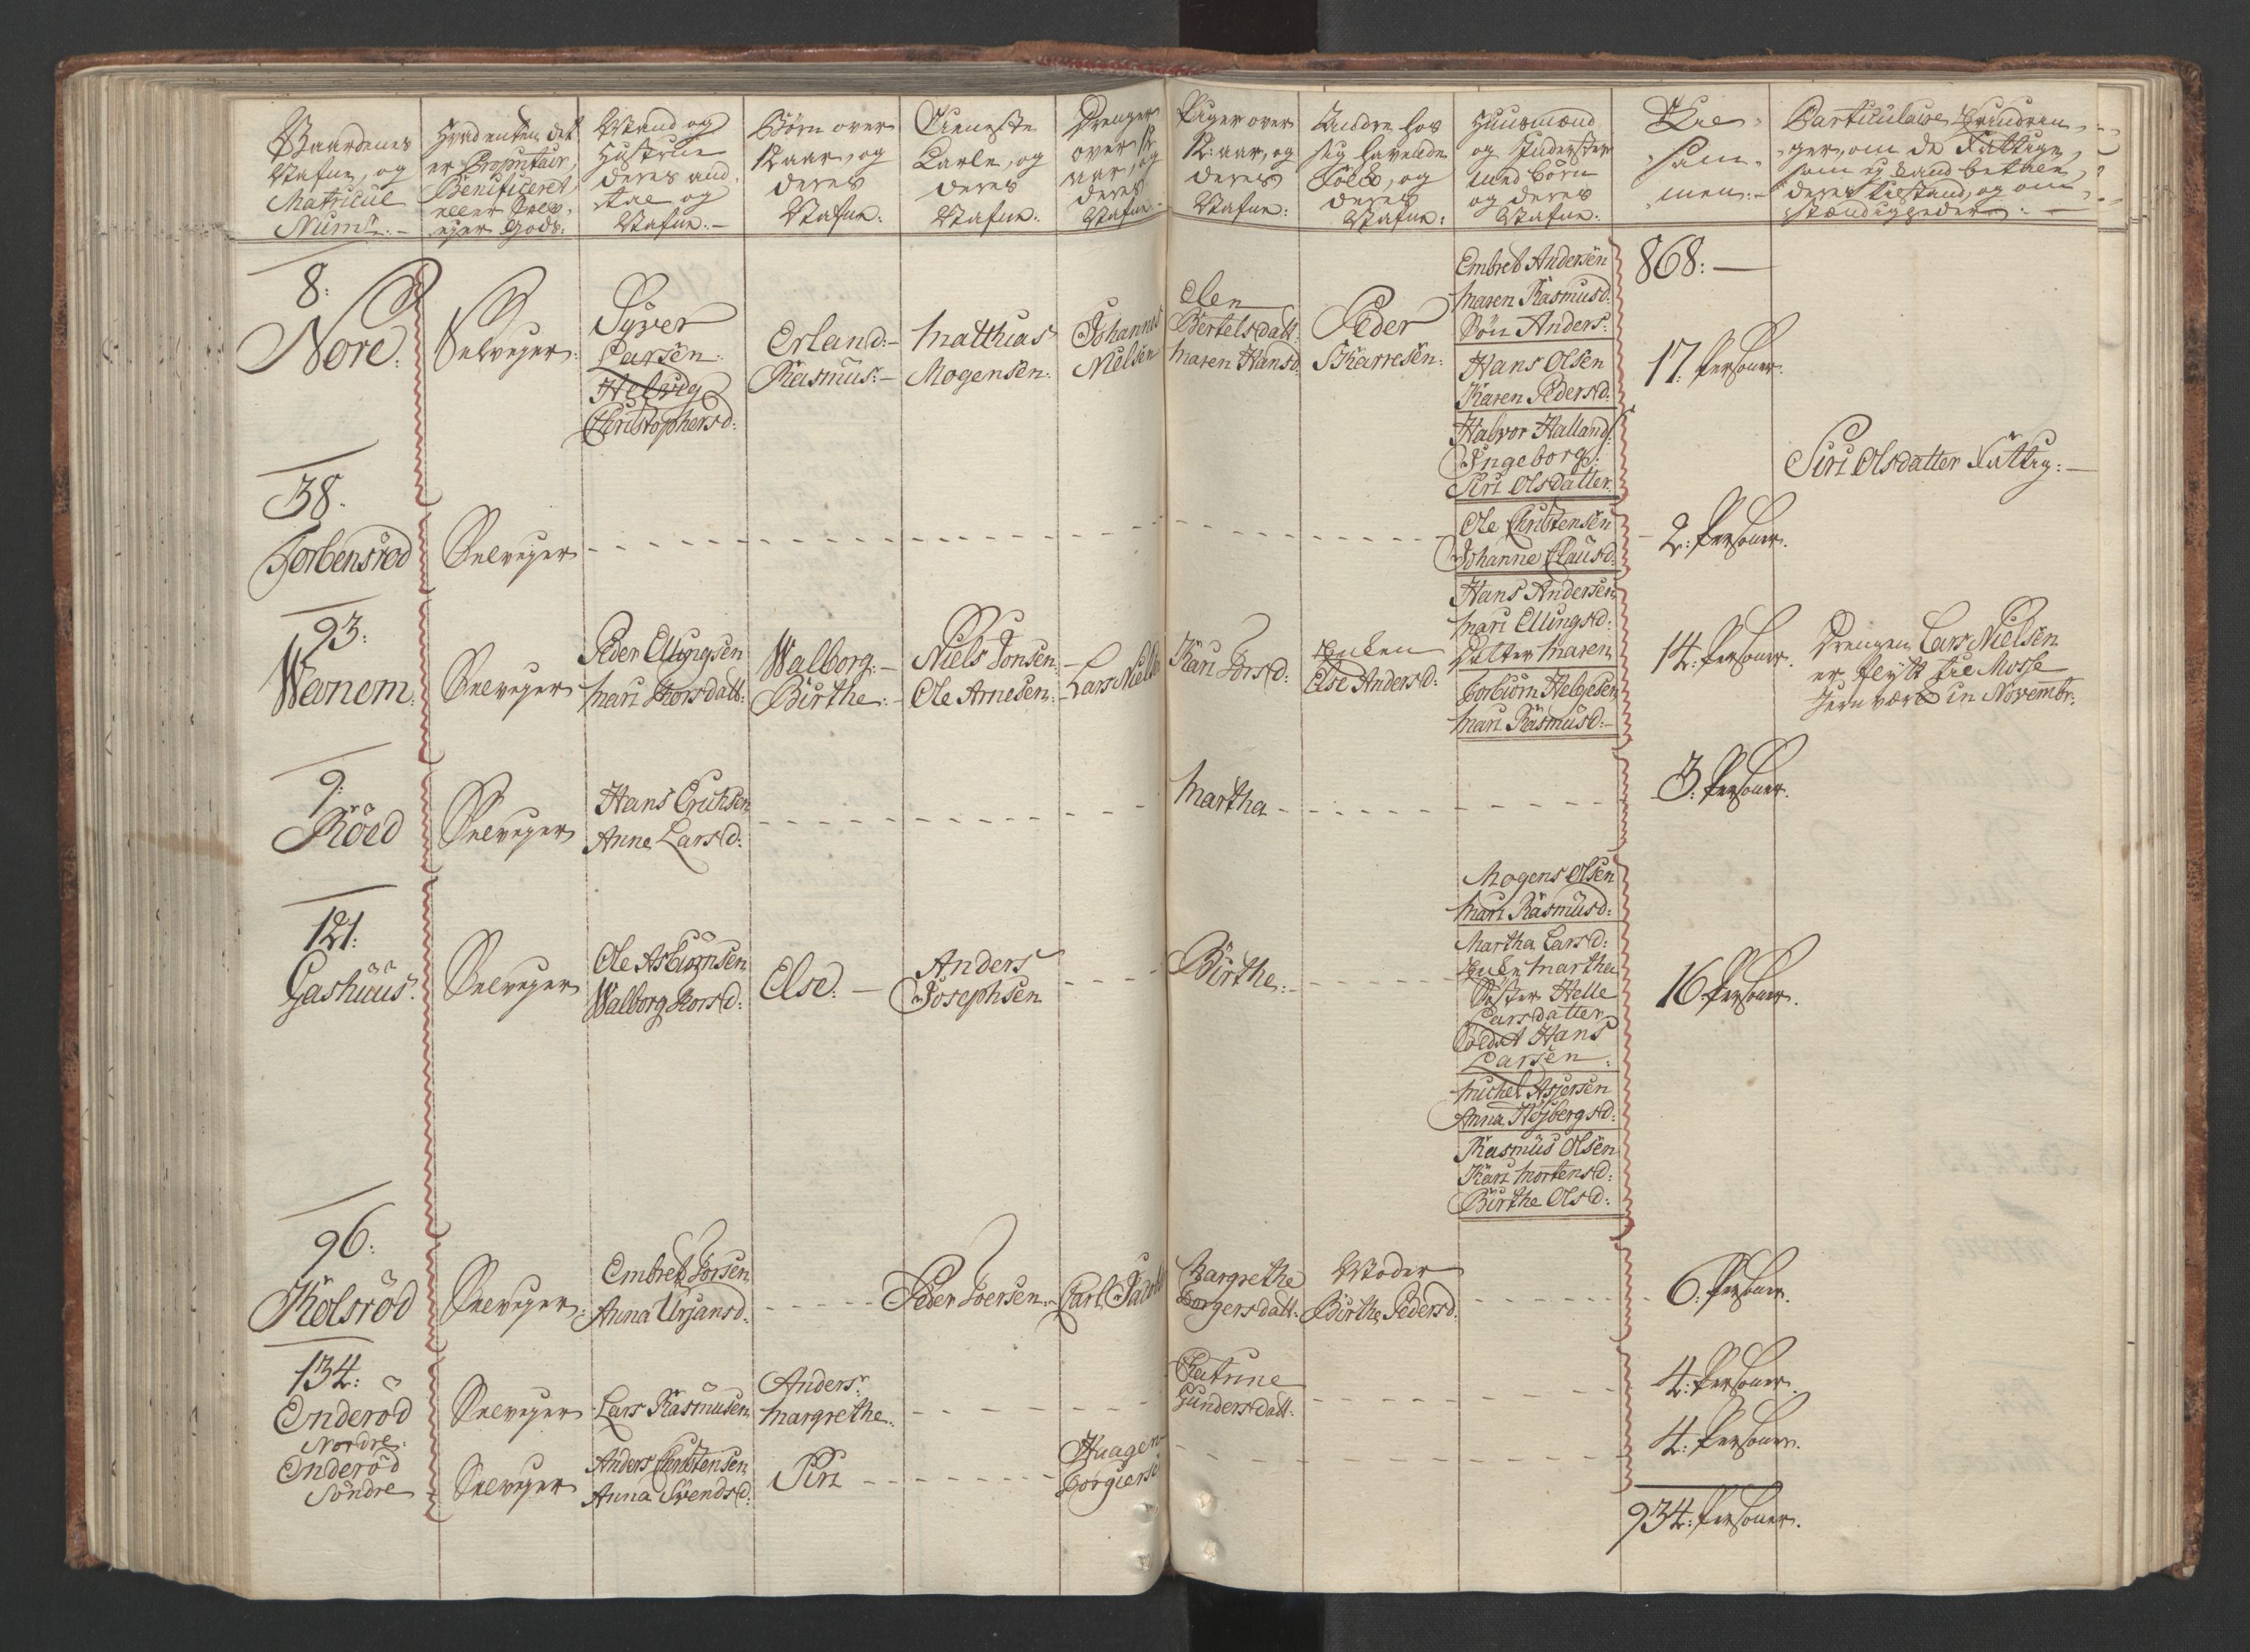 Gaardenes
Nafne, og
Matricul
Num:
Hvad enten det
er Proprietair,
Beneficeret,
eller Selv-
ejer Gods.
Mand og
Hustrue
deres
og
Nafne.
Børn over
12 aar, og
deres
Nafne.
Tieneste
Karle, og
deres
Nafne.
Drenger
over 12
aar, og
deres
Nafne.
Piger over
12: aar, og
deres
Nafne:
Andre hos
sig havende
Folck, og
deres
Nafne:
Huusmænd
og Inderster
med børn
og deres
Nafne:
Til-
sam-
men:
Particulaire Erindrin-
ger, om de Fattige,
som ej kand betale,
deres tilstand, og om-
stændigheder.
868:
8:
Nore:
Selvejer:
Syver
Larsen
Helvig
Christophersd:
Erland:
Rasmus:
Matthias
Mogensen.
Johannes
Nielsen
Elen
Bertelsdatt:
Maren Hansd:
Peder
Skarresen:
Embret Andersen
Maren Rasmusd.
Søn Anders:
Hans Olsen
Karen Pedersd:
Halvor Halland
Ingeborg:
Siri Olsdatter.
17: Personer.
Siri Olsdatter Fattig:
38.
Torbensrød
Selvejer
Ole Christensen
Johanne Clausd:
2: Personer.
93:
Wanem.
Selvejer
Peder Ellingsen
Mari Thorsdatt:
Walborg:
Birthe:
Niels Jonsen:
Ole Arnesen:
Lars Nielsen
Kari Jorsd:
Enken
Else Andersd:
Hans Andersen
Mari Ellingsd:
Datter Maren
Torbiørn Helgesen
Mari Rasmusd:
14: Personer.
Drengen Lars Nielsen
er flytt til Mosse
Jernværck in Novembr:
9:
Röed
Selvejer
Hans Erichsen
Anne Larsd:
Martha
3: Personer.
121:
Gashuus:
Selvejer
Ole Asbiørnsen
Walborg Thorsd:
Else:
Anders
Josephsen
Birthe:
Mogens Olsen
Mari Rasmusd:
Martha Larsd:
Enke Martha
Søster Helle
Larsdatter
Soldat Hans
Larsen:
Michel Asjersen
Anna Højbergsd:
Rasmus Olsen
Kari Mortensd:
Birthe Olsd:
16 Personer.
96:
Kolsrød
Selvejer:
Embret Jorsen
Anna Urjansd.
Peder Joersen.
Carl Jacob
Margrethe
Borgersdatt:
Moder
Birthe Pedersd:
6: Personer.
134:
Enderød
Nordre:
Selvejer
Lars Rasmusen
Anders:
Margrethe.
Catrine
Gundersdatt.
4: Personer.
Enderød
Søndre
Selvejer
Anders Christensen
Anna Svendsd:
Siri
Haagen
Borgiers
4: Personer.
934: Personer.